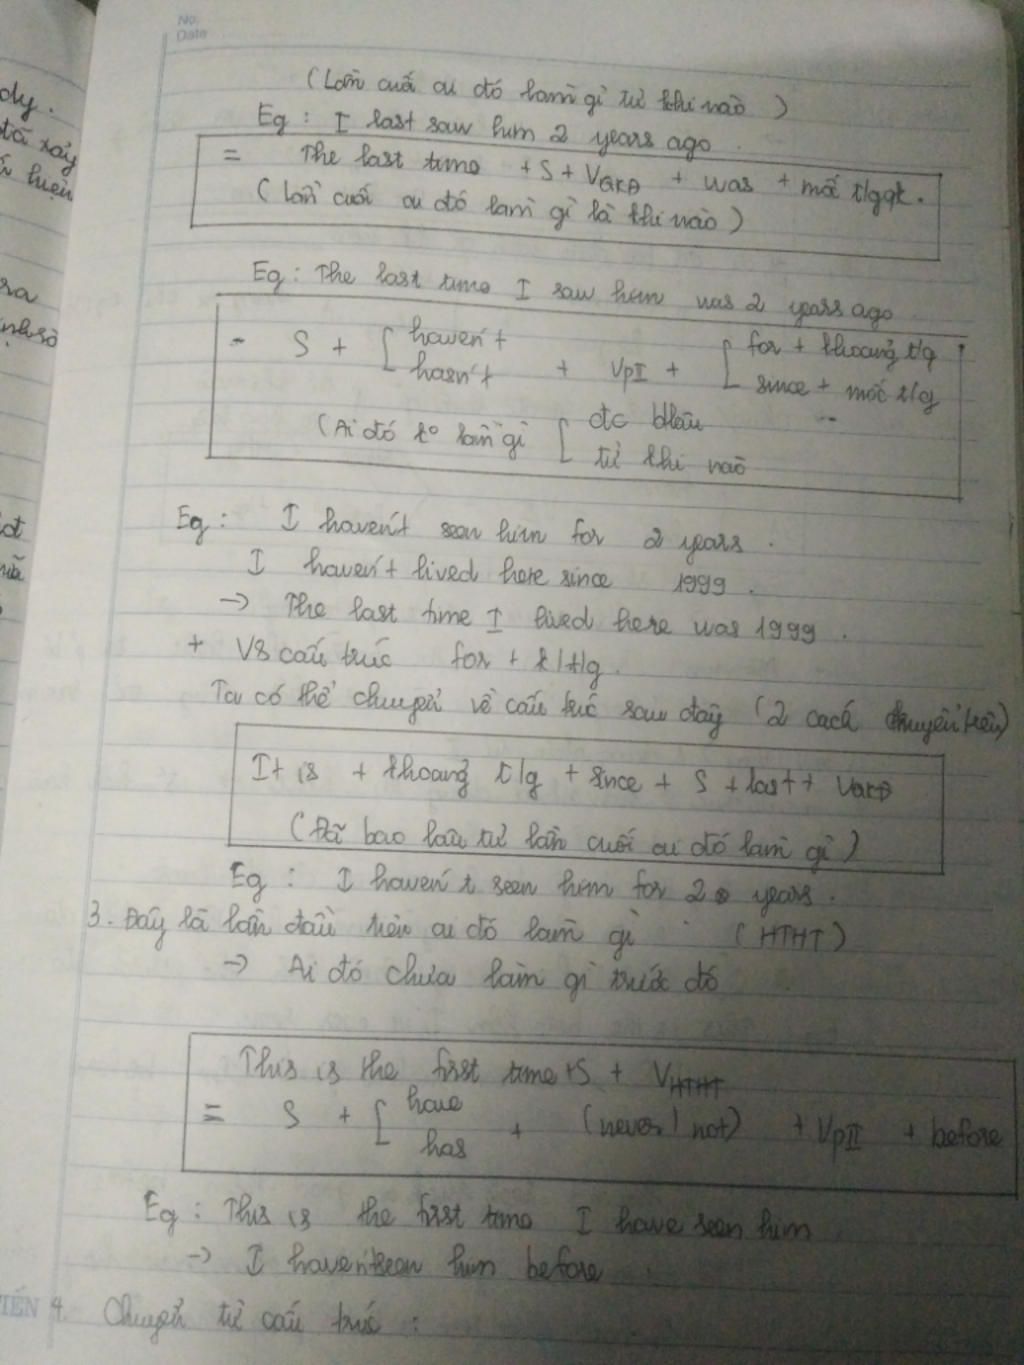 No.
Date
dy.
đã xảy
hiện
ra
(Lần cuối ai đó làm gì từ khi nào)
Eg : I last saw him 2 years ago.
= The last time + S + VQKĐ + was + mốc t/gqk.
(lần cuối ai đó làm gì là khi nào)
Eg : The last time I saw him was 2 years ago
- S + [ haven't / hasn't + VpII + [ for + khoảng t/g / since + mốc t/g
(Ai đó ko làm gì [ đc blâu / từ khi nào
Eg : I haven't seen him for 2 years.
I haven't lived here since 1999.
→ The last time I lived here was 1999.
+ Vs cấu trúc for + k/t/g.
Ta có thể chuyển về cấu trúc sau đây (2 cách chuyển trên)
It is + khoảng t/g + since + S + last + VQKĐ
(Đã bao lâu từ lần cuối ai đó làm gì)
Eg : I haven't seen him for 2 years.
3. Đây là lần đầu tiên ai đó làm gì (HTHT)
→ Ai đó chưa làm gì trước đó
This is the first time + S + VHTHT
= S + [ have / has + (never / not) + VpII + before
Eg : This is the first time I have seen him
→ I haven't seen him before
TIẾN 4. Chuyển từ cấu trúc :